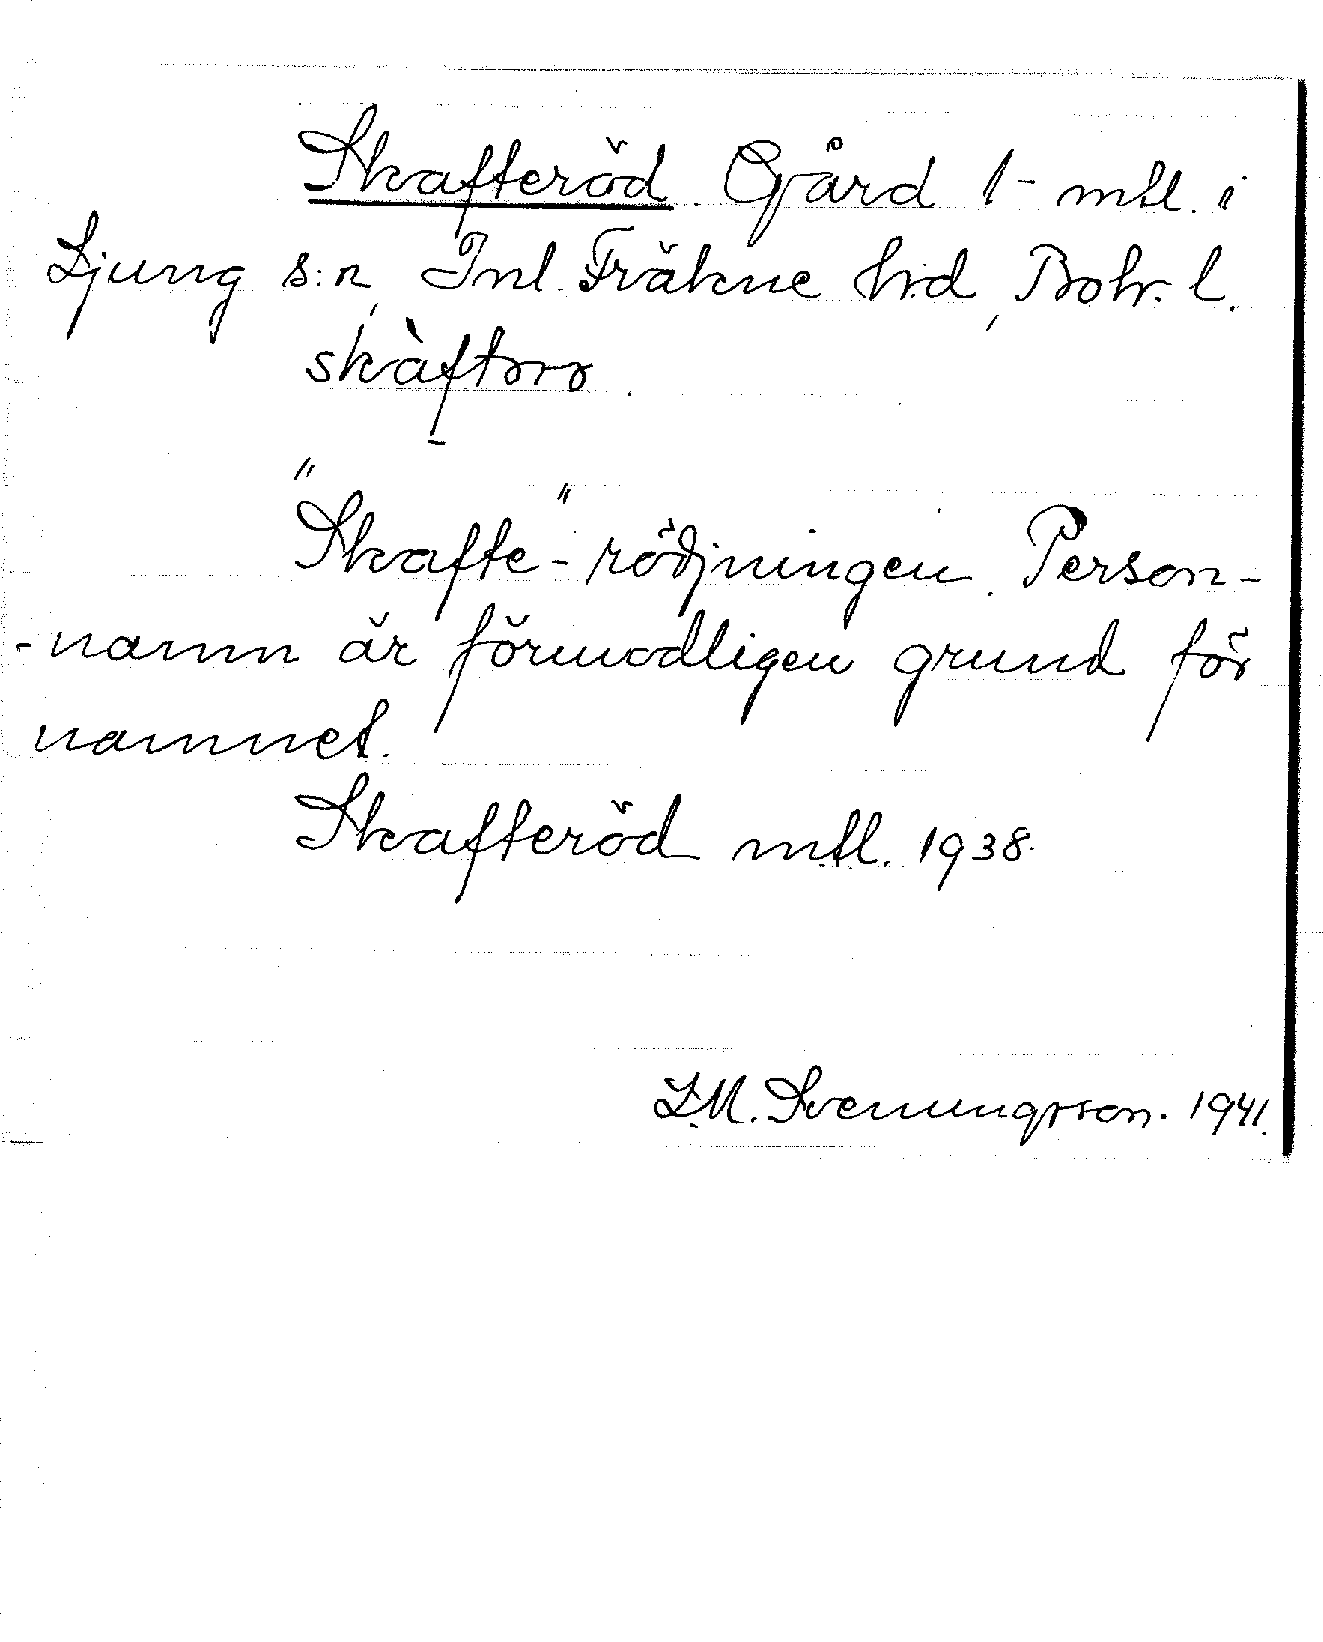 Skafteröd. Gård 1- mtl. i
Ljung s:n, Inl. Fräkne hrd, Boh. l.
skàftrrr.
"Skafte"-rödjningen. Person-
-namn är förmodligen grund för
namnet.
Skafteröd mtl. 1938.
L.M. Svenungsson. 1941.